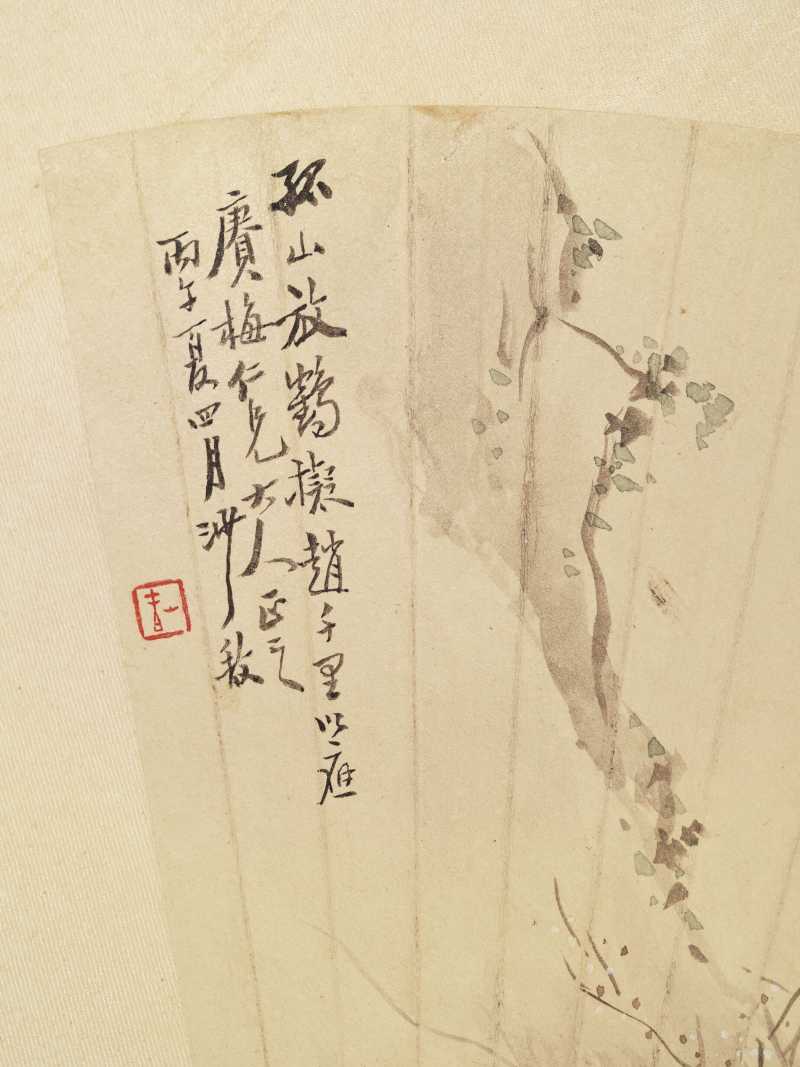 孤山放鶴擬趙千里以應
賡梅仁兄大人正之
丙午夏四月沙馥